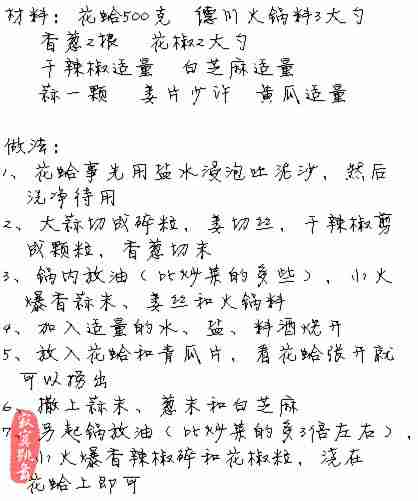 材料：花蛤500克 德川火锅料3大勺
香葱2根 花椒2大勺
干辣椒适量 白芝麻适量
蒜一颗 姜片少许 黄瓜适量
做法：
1、花蛤事先用盐水浸泡吐泥沙，然后
洗净待用
2、大蒜切成碎粒，姜切丝，干辣椒剪
成颗粒，香葱切末
3、锅内放油（比炒菜的多些），小火
爆香蒜末、姜丝和火锅料
4、加入适量的水、盐、料酒烧开
5、放入花蛤和青瓜片，看花蛤张开就
可以捞出
6、撒上蒜末、葱末和白芝麻
7、另起锅放油（比炒菜的多3倍左右），
小火爆香辣椒碎和花椒粒，浇在
花蛤上即可